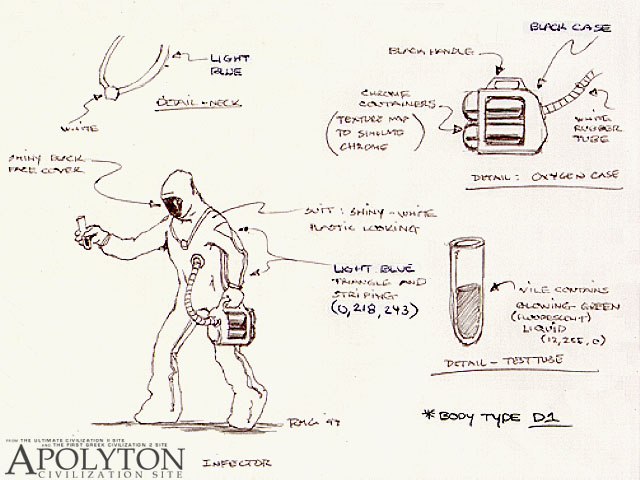 LIGHT
BLUE
DETAIL - NECK
WHITE
BLACK CASE
BLACK HANDLE
CHROME
CONTAINERS
(TEXTURE MAP
TO SIMULATE
CHROME)
WHITE
RUBBER
TUBE
DETAIL: OXYGEN CASE
SHINY BLACK
FACE COVER
SUIT: SHINY-WHITE
PLASTIC LOOKING
LIGHT BLUE
TRIANGLE AND
STRIPING
(0,218,243)
VILE CONTAINS
GLOWING-GREEN
(FLUORESCENT)
LIQUID
(12,255,0)
DETAIL - TESTTUBE
*BODY TYPE D1
INFECTOR
FROM THE ULTIMATE CIVILIZATION II SITE
AND THE FIRST GREEK CIVILIZATION 2 SITE
APOLYTON
CIVILIZATION SITE